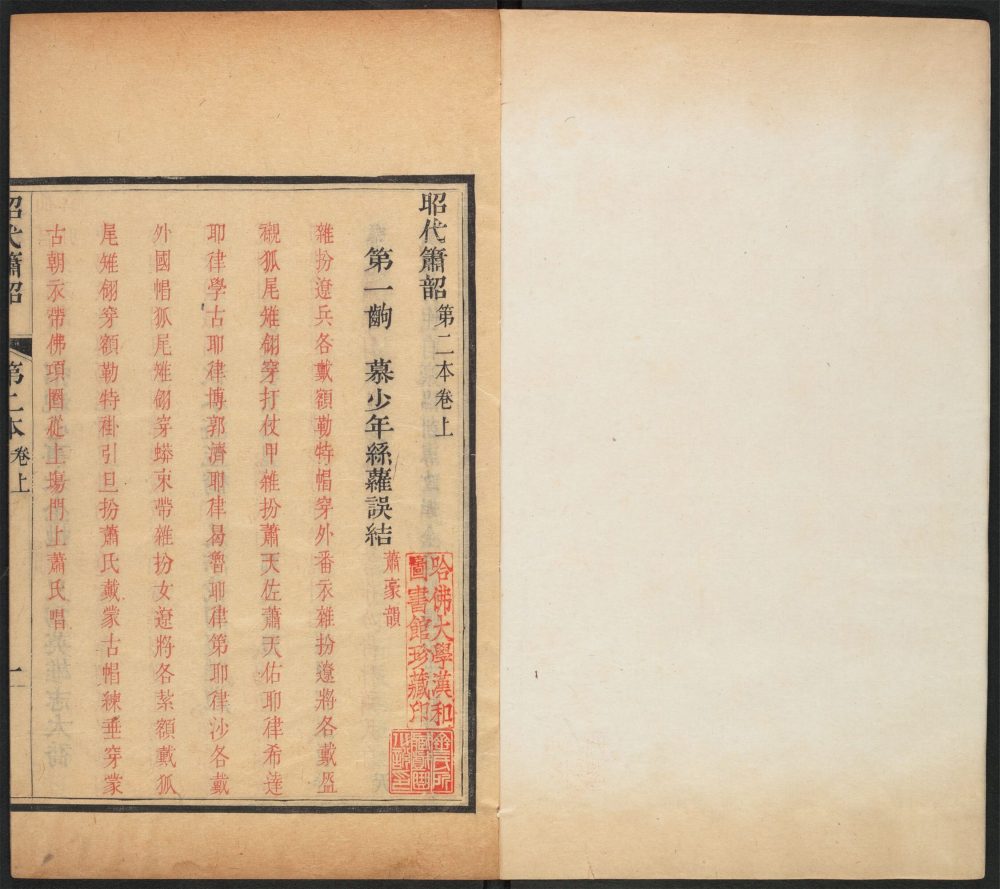 昭代簫韶 第二本卷上
第一齣 慕少年絲蘿誤結 蕭豪韻
雜扮遼兵各戴額勒特帽穿外番衣雜扮遼將各戴盔
襯狐尾雉翎穿打仗甲雜扮蕭天佐蕭天佑耶律希達
耶律學古耶律博郭濟耶律曷魯耶律第耶律沙各戴
外國帽狐尾雉翎穿蟒束帶雜扮女遼將各紮額戴狐
尾雉翎穿額勒特褂引旦扮蕭氏戴蒙古帽練垂穿蒙
古朝衣帶佛項圈從上場門上蕭氏唱
昭代簫韶 第二本 卷上 一
哈佛大學漢和
圖書館珍藏印